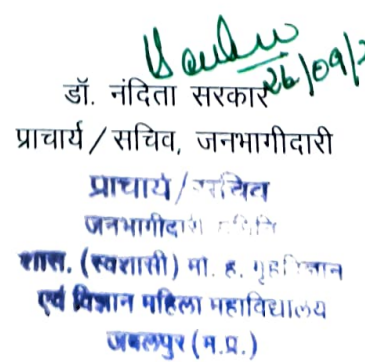 26/09/
डॉ. नंदिता सरकार
प्राचार्य / सचिव, जनभागीदारी
प्राचार्य/सचिव
जनभागीदारी समिति
शास. (स्वशासी) मो. ह. गृहविज्ञान
एवं विज्ञान महिला महाविद्यालय
जबलपुर (म.प्र.)